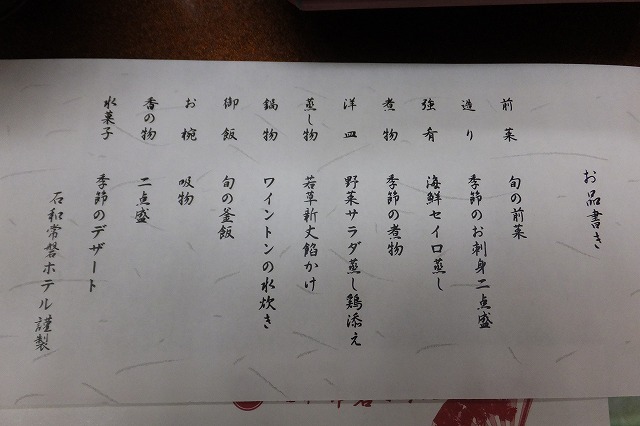 お品書き
前菜 旬の前菜
造り 季節のお刺身二点盛
強肴 海鮮セイロ蒸し
煮物 季節の煮物
洋皿 野菜サラダ蒸し鶏添え
蒸し物 若草新丈餡かけ
鍋物 ワイントンの水炊き
御飯 旬の釜飯
お椀 吸物
香の物 二点盛
水菓子 季節のデザート
石和常磐ホテル謹製